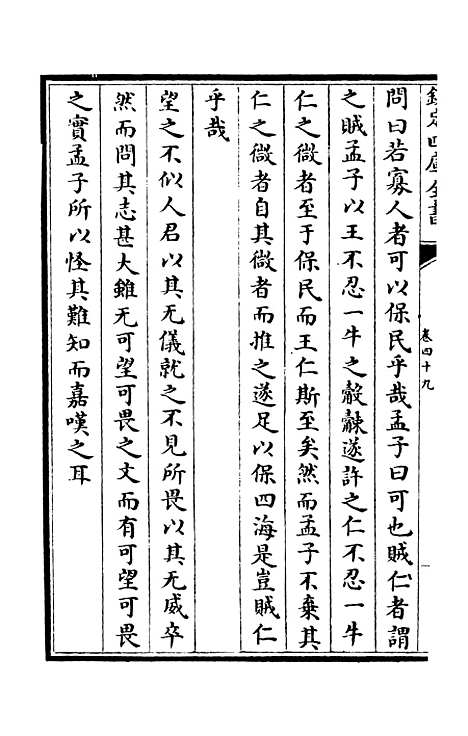 欽定四庫全書
卷四十九
問曰若寡人者可以保民乎哉孟子曰可也賊仁者謂
之賊孟子以王不忍一牛之觳觫遂許之仁不忍一牛
仁之微者至于保民而王仁斯至矣然而孟子不棄其
仁之微者自其微者而推之遂足以保四海是豈賊仁
乎哉
望之不似人君以其无儀就之不見所畏以其无威卒
然而問其志甚大雖无可望可畏之文而有可望可畏
之實孟子所以怪其難知而嘉嘆之耳